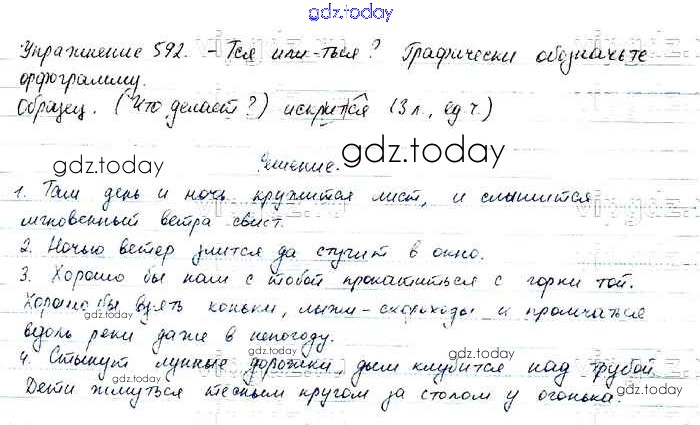 gdz.today
Упражнение 592. -Тся или -ться? Графически обозначьте
орфограмму.
Образец. (Что делает?) искрится (3 л., ед.ч.)
gdz.today
gdz.today
Решение.
1. Там день и ночь кружится лист, и слышится
мгновенный ветра свист.
gdz.today
2. Ночью ветер злится да стучит в окно.
3. Хорошо бы нам с тобой прокатиться с горки той.
Хорошо бы взять коньки, лыжи-скороходы и промчаться
gdz.today
вдоль реки даже в непогоду.
gdz.today
4. Стынут лунные дорожки, дым клубится над трубой.
gdz.today
gdz.today
Дети жмуться тесным кругом за столом у огонька.